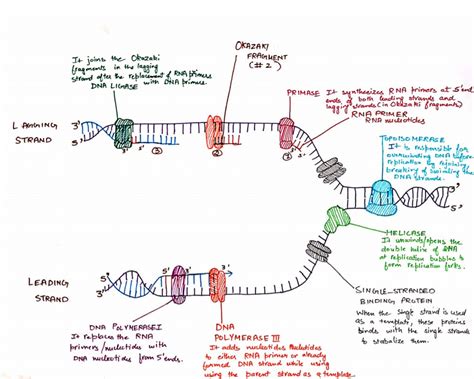 It joins the Okazaki
fragments in the lagging
strand after the replacement of RNA primers
with DNA primers.
DNA LIGASE
OKAZAKI
FRAGMENT
(#2)
PRIMASE
It synthesizes RNA primers at 5' end
ends of both leading strands and
lagging strands (in Okazaki fragments)
RNA PRIMER
RNA nucleotides
LAGGING
STRAND
3'
5'
3'
5'
3
2
1
TOPOISOMERASE
It is responsible for
overwinding DNA before
replication by rejoining
breaking of swiveling the
DNA strands.
3'
5'
HELICASE
It unwinds/opens the
double helix of DNA
at replication bubbles to
form replication forks.
LEADING
STRAND
5'
3'
5'
3'
SINGLE-STRANDED
BINDING PROTEIN
When the single strand is used
as a template, these proteins
binds with the single strands
to stabalize them.
DNA POLYMERASE I
It replaces the RNA
primers/nucleotides with
DNA nucleotides from 5' ends.
DNA
POLYMERASE III
It adds nucleotides
to either RNA primer or already
formed DNA strand while using
using the parent strand as a template